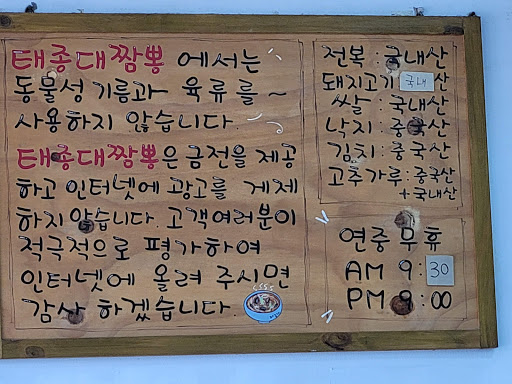 태종대짬뽕 에서는
동물성 기름과 육류를 ~
사용하지 않습니다.
태종대짬뽕은 금전을 제공
하고 인터넷에 광고를 게제
하지 않습니다. 고객여러분이
적극적으로 평가하여
인터넷에 올려 주시면
감사 하겠습니다.
전복 : 국내산
돼지고기 국내산
쌀 : 국내산
낙지 : 중국산
김치 : 중국산
고추가루 : 중국산
+ 국내산
연중무휴
AM 9 : 30
PM 9 : 00